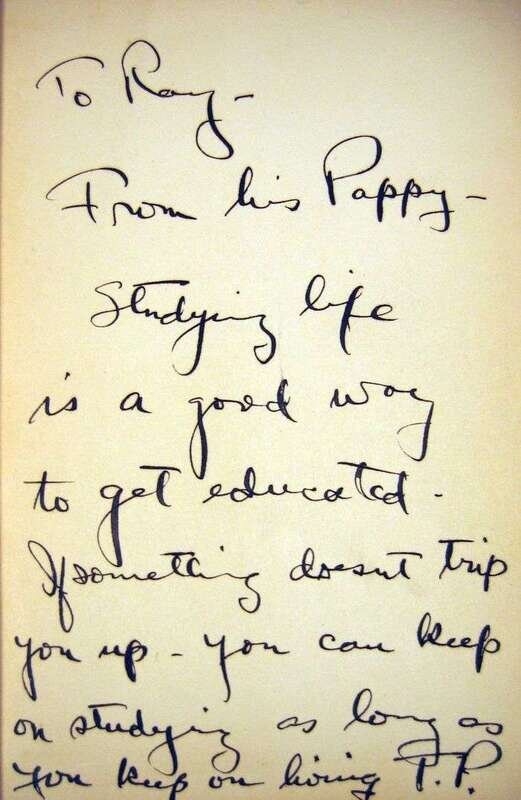 To Ray -
From his Pappy -
Studying life
is a good way
to get educated -
If something doesnt trip
you up - you can keep
on studying as long as
you keep on living P.P.